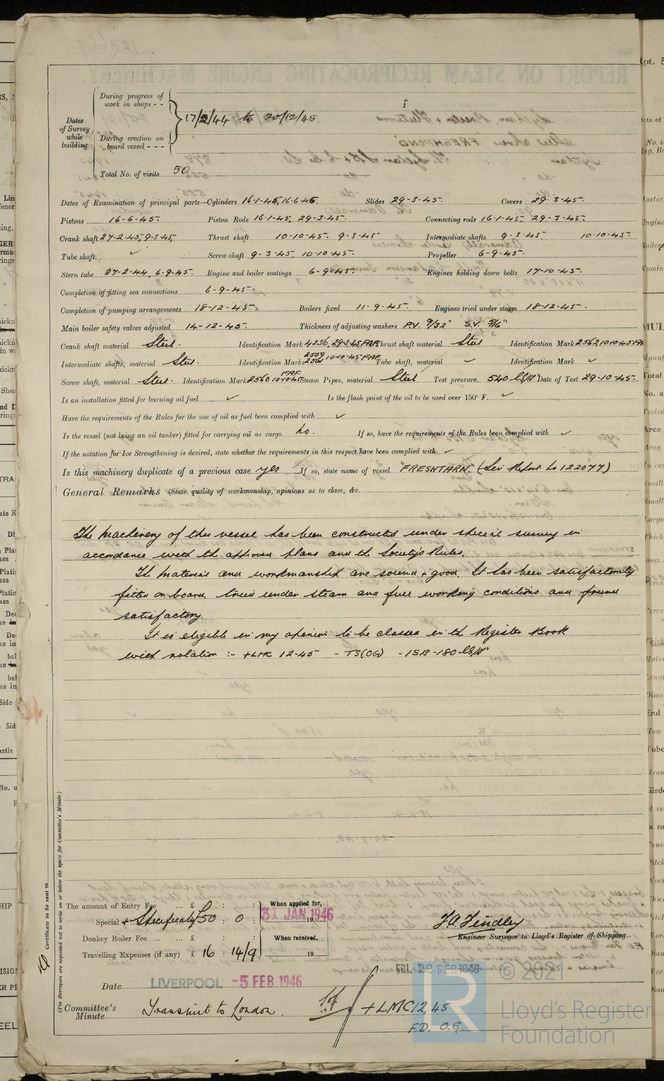 During progress of work in shops - -
Dates of Survey while building
17/2/44 to 20/12/45.
During erection on board vessel - - -
Total No. of visits 50
Dates of Examination of principal parts—Cylinders 16-1-45, 16-6-45. Slides 29-3-45. Covers 29-3-45.
Pistons 16-6-45. Piston Rods 16-1-45, 29-3-45. Connecting rods 16-1-45, 29-3-45.
Crank shaft 27-2-45, 9-3-45, Thrust shaft 10-10-45. 9-3-45. Intermediate shafts 9-3-45. 10-10-45.
Tube shaft. ✓ Screw shaft 9-3-45, 10-10-45. Propeller 6-9-45.
Stern tube 27-2-44, 6-9-45. Engine and boiler seatings 6-9-45. Engines holding down bolts 17-10-45.
Completion of fitting sea connections 6-9-45.
Completion of pumping arrangements 18-12-45. Boilers fixed 11-9-45. Engines tried under steam 18-12-45.
Main boiler safety valves adjusted 14-12-45. Thickness of adjusting washers
Crank shaft material Steel. Identification Mark Thrust shaft material Steel Identification Mark
Intermediate shafts, material Steel. Identification Marks Tube shaft, material ✓ Identification Mark ✓
Screw shaft, material Steel. Identification Mark 2560 10-10-45 FAF. Steam Pipes, material Steel Test pressure. 540 lbs/□" Date of Test 29-10-45.
Is an installation fitted for burning oil fuel ✓ Is the flash point of the oil to be used over 150° F. ✓
Have the requirements of the Rules for the use of oil as fuel been complied with ✓
Is the vessel (not being an oil tanker) fitted for carrying oil as cargo No. If so, have the requirements of the Rules been complied with ✓
If the notation for Ice Strengthening is desired, state whether the requirements in this respect have been complied with ✓
Is this machinery duplicate of a previous case yes If so, state name of vessel "FRESHTARN" (Liv Report No 122077)
General Remarks (State quality of workmanship, opinions as to class, &c.
The machinery of this vessel has been constructed under special survey in
accordance with the approved plans and the Society's Rules.
The materials and workmanship are sound & good. It has been satisfactorily
fitted on board, tried under steam and full working conditions and found
satisfactory.
It is eligible in my opinion to be classed in the Register Book
with notation :- +LMC 12-45 - TS(OG) - 1SB-180 lbs/□"
Certificate to be sent to
(The Surveyors are requested not to write on or below the space for Committee's Minute.)
The amount of Entry Fee ... £ : : When applied for,
Special + Specification £50 : 0 : 31 JAN 1946
Donkey Boiler Fee ... ... £ : : When received,
Travelling Expenses (if any) £ 16 : 14/9 19
F.A. Findley
Engineer Surveyor to Lloyd's Register of Shipping.
Date LIVERPOOL -5 FEB 1946
Committee's Minute Transmit to London.
+LMC 12,45
F.D. O.G.
© 2021
LR
Lloyd's Register
Foundation